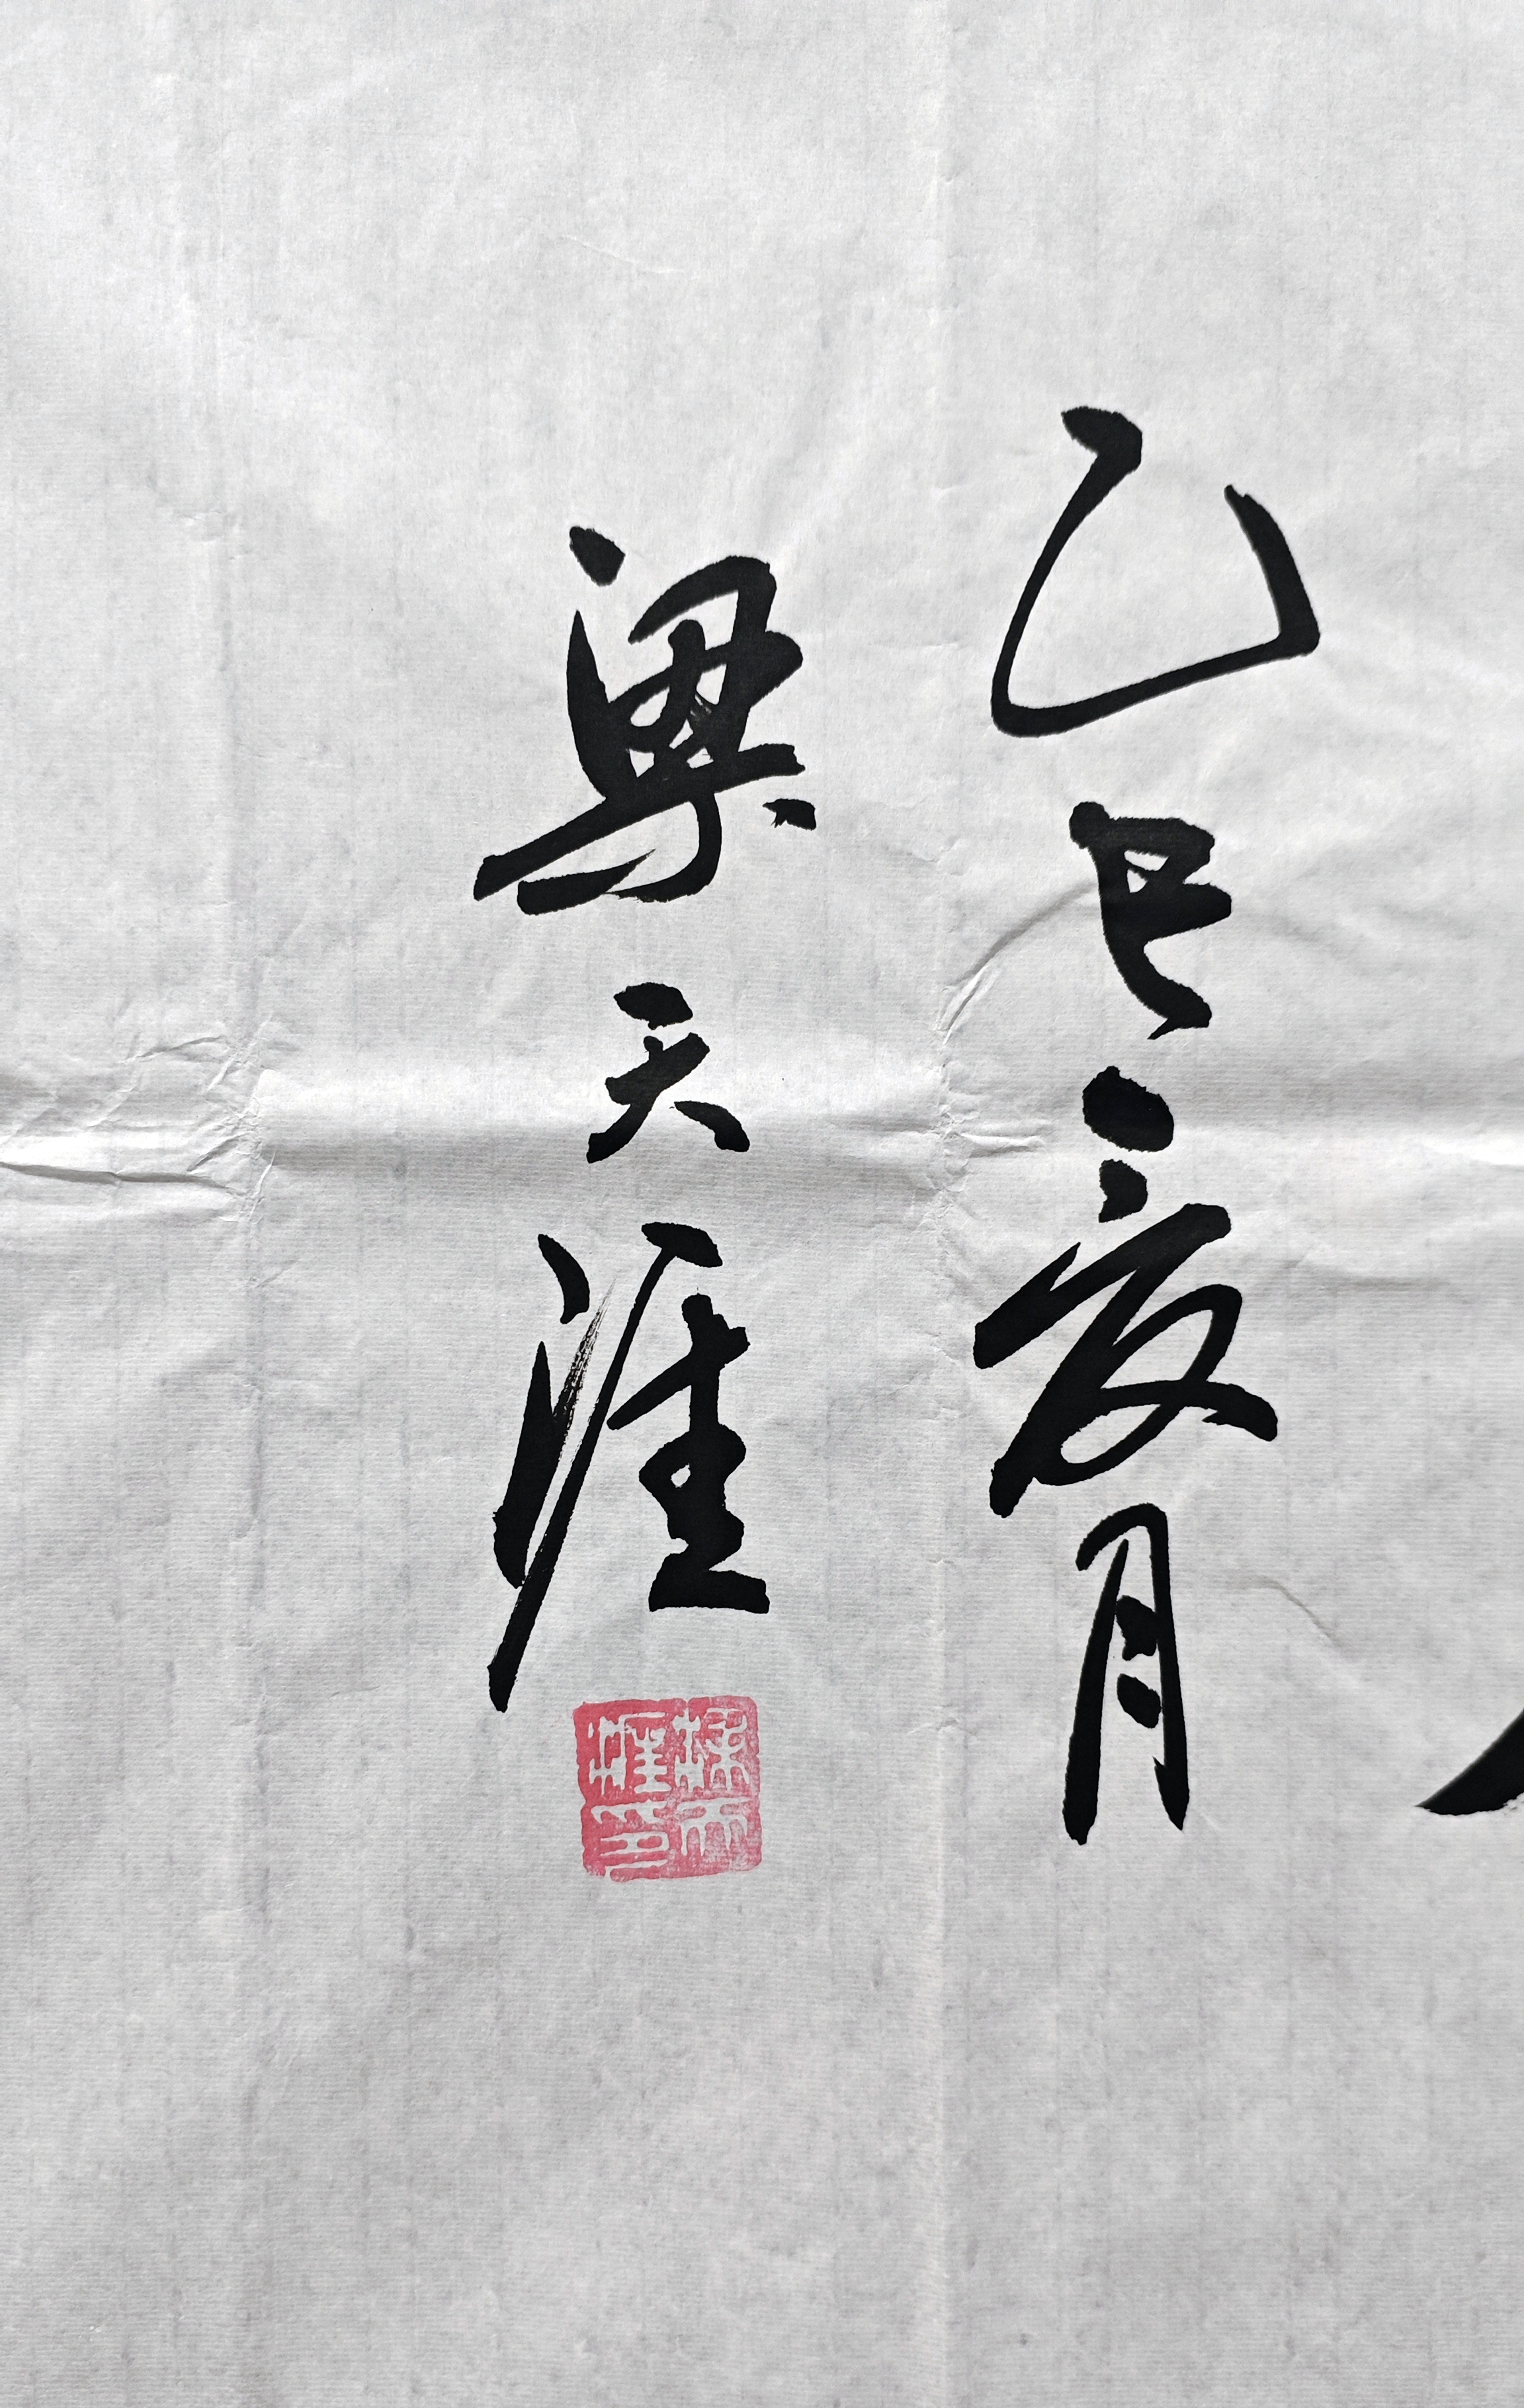 乙巳夏月
梁天涯
梁天涯印